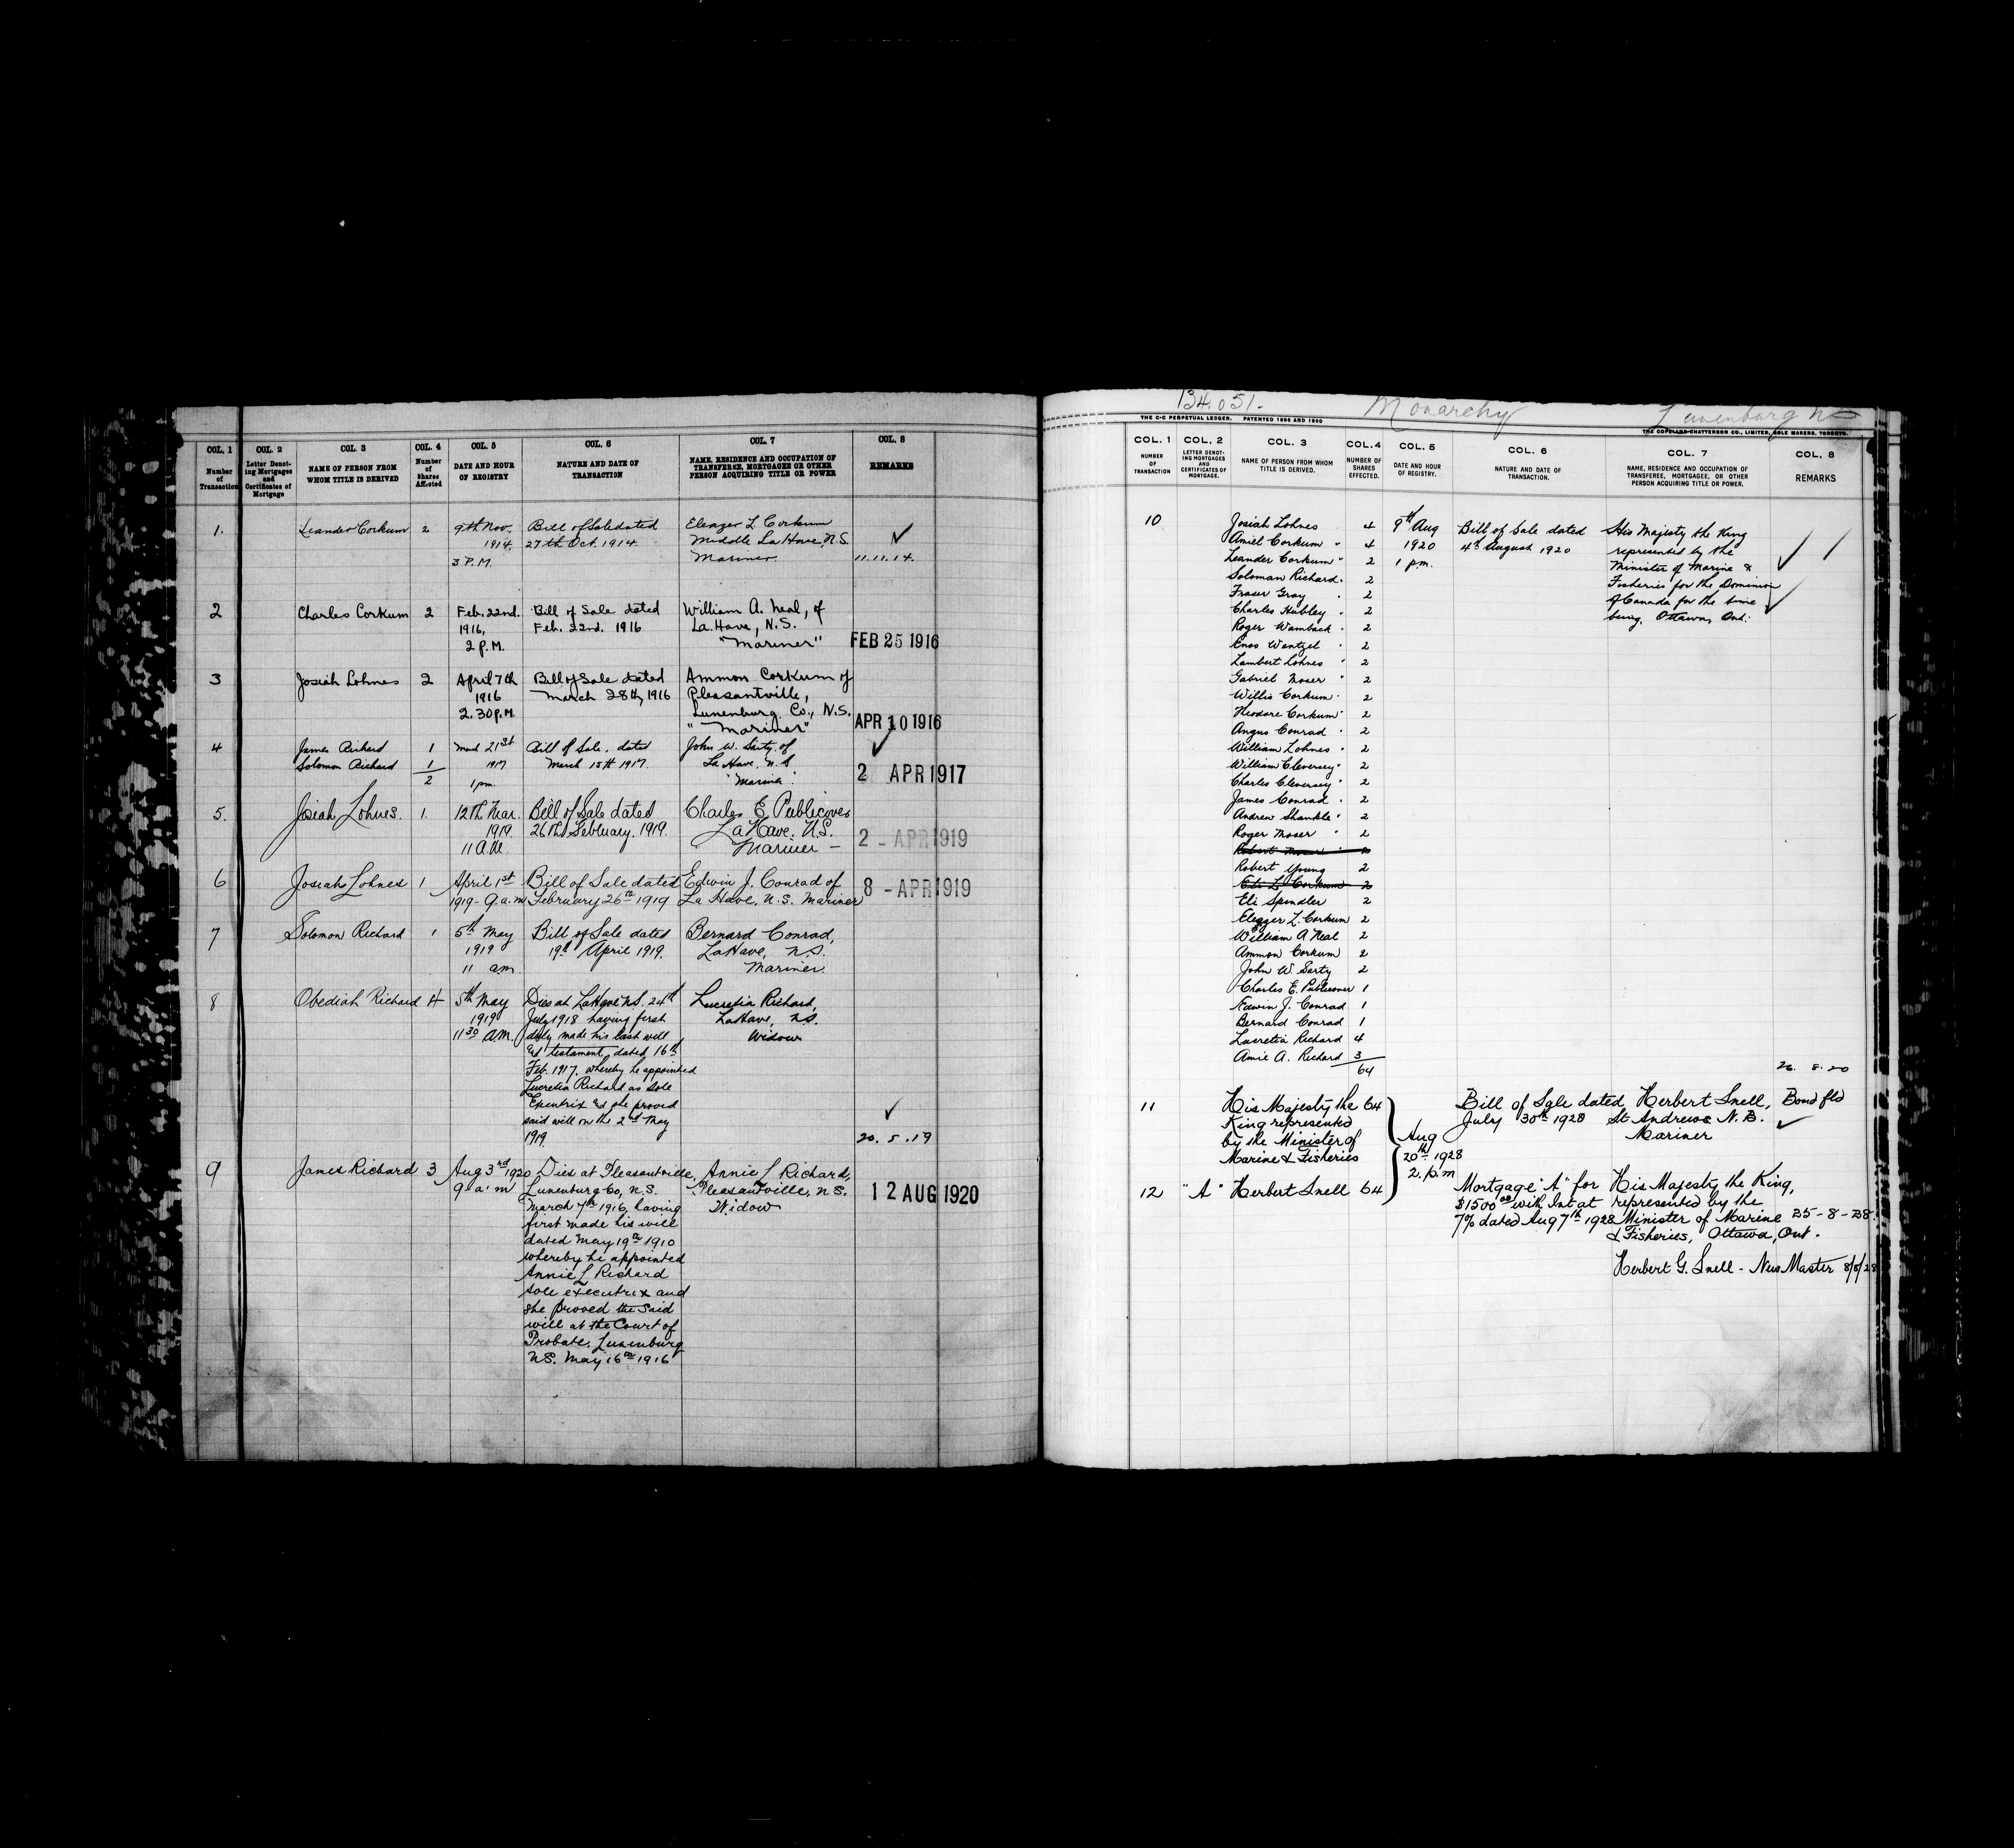 COL. 1
Number of Transaction
COL. 2
Letter Denoting Mortgages and Certificates of Mortgage
COL. 3
NAME OF PERSON FROM WHOM TITLE IS DERIVED
COL. 4
Number of Shares Affected
COL. 5
DATE AND HOUR OF REGISTRY
COL. 6
NATURE AND DATE OF TRANSACTION
COL. 7
NAME, RESIDENCE AND OCCUPATION OF TRANSFEREE, MORTGAGEE OR OTHER PERSON ACQUIRING TITLE OR POWER
COL. 8
REMARKS
1. Leander Corkum 2 9th Nov. Bill of Sale dated Eleazer L. Corkum
1914. 27th Oct. 1914. Middle La Have, N.S.
3 P.M. Mariner. 11.11.14.
2 Charles Corkum 2 Feb. 22nd. Bill of Sale dated William A. Neal, of
1916, Feb. 22nd. 1916 La Have, N.S.
2 P.M. "Mariner" FEB 25 1916
3 Josiah Lohnes 2 April 7th Bill of Sale dated Ammon Corkum of
1916 March 28th, 1916 Pleasantville,
2.30 P.M. Lunenburg Co., N.S.
"Mariner" APR 10 1916
4 James Richard 1 March 21st Bill of Sale, dated John W. Sarty of
Solomon Richard 1 1917 March 15th 1917. La Have, N.S
2 1 pm. "Mariner". 2 APR 1917
5. Josiah Lohnes. 1. 12th Mar. Bill of Sale dated Charles E. Publicover
1919. 26th February. 1919. La Have. N.S.
11 A.M. Mariner — 2 - APR 1919
6 Josiah Lohnes 1 April 1st Bill of Sale dated Edwin J. Conrad of
1919 - 9 a.m February 26th 1919 La Have, N.S. Mariner 8 - APR 1919
7 Solomon Richard 1 5th May Bill of Sale dated Bernard Conrad,
1919 19th April 1919. LaHave, N.S.
11 am. Mariner.
8 Obediah Richard 4 5th May Dies at LaHave N.S. 24th Lucretia Richard,
1919 July 1918 having first LaHave, N.S.
11 30 A.M. duly made his last will Widow
& testament, dated 16th
Feb. 1917, whereby he appointed
Lucretia Richard as sole
Executrix & she proved
said will on the 2nd May
1919. 20.5.19
9 James Richard 3 Aug 3rd 1920 Dies at Pleasantville, Annie L Richard,
9 a.m Lunenburg Co, N.S. Pleasantville, N.S. 12 AUG 1920
March 7th 1916, having Widow
first made his will
dated May 19th 1910
whereby he appointed
Annie L Richard
sole executrix and
she proved the said
will at the Court of
Probate, Lunenburg
N.S. May 16th 1916
134,051. Monarchy Lunenburg NS
THE C-C PERPETUAL LEDGER. PATENTED
THE COPELAND-CHATTERSON CO., LIMITED, SOLE MAKERS, TORONTO.
COL. 1
NUMBER OF TRANSACTION
COL. 2
LETTER DENOTING MORTGAGES AND CERTIFICATES OF MORTGAGE.
COL. 3
NAME OF PERSON FROM WHOM TITLE IS DERIVED.
COL. 4
NUMBER OF SHARES EFFECTED.
COL. 5
DATE AND HOUR OF REGISTRY.
COL. 6
NATURE AND DATE OF TRANSACTION.
COL. 7
NAME, RESIDENCE AND OCCUPATION OF TRANSFEREE, MORTGAGEE, OR OTHER PERSON ACQUIRING TITLE OR POWER.
COL. 8
REMARKS
10 Josiah Lohnes 4 9th Aug Bill of Sale dated His Majesty the King
Amiel Corkum " 4 1920 4th August 1920 represented by the
Leander Corkum " 2 1 pm. Minister of Marine &
Soloman Richard. 2 Fisheries for the Dominion
Fraser Gray 2 of Canada for the time
Charles Hubley 2 being, Ottawa, Ont.
Roger Wamback 2
Enos Wentzel 2
Lambert Lohnes 2
Gabriel Moser 2
Willis Corkum 2
Theodore Corkum 2
Angus Conrad 2
William Lohnes 2
William Cleversey 2
Charles Cleversey 2
James Conrad 2
Andrew Shankle 2
Roger Moser 2
Robert Moser 2
Robert Young 2
Eli L. Corkum 2
Eli Spindler 2
Eleazer L. Corkum 2
William A Neal 2
Ammon Corkum 2
John W. Sarty 2
Charles E. Publicover 1
Edwin J. Conrad 1
Bernard Conrad 1
Lucretia Richard 4
Amie A. Richard 3
64 26. 8. 20
11 His Majesty the 64 Bill of Sale dated Herbert Snell, Bond fld
King represented July 30th 1928 St Andrews N.B.
by the Minister of Aug Mariner
Marine & Fisheries 20th 1928
2. p.m
12 "A" Herbert Snell 64 Mortgage "A" for His Majesty the King,
$1500 00 with Int at represented by the
7% dated Aug 7th 1928 Minister of Marine 25-8-28.
& Fisheries, Ottawa, Ont.
Herbert G. Snell - New Master 8/8/28